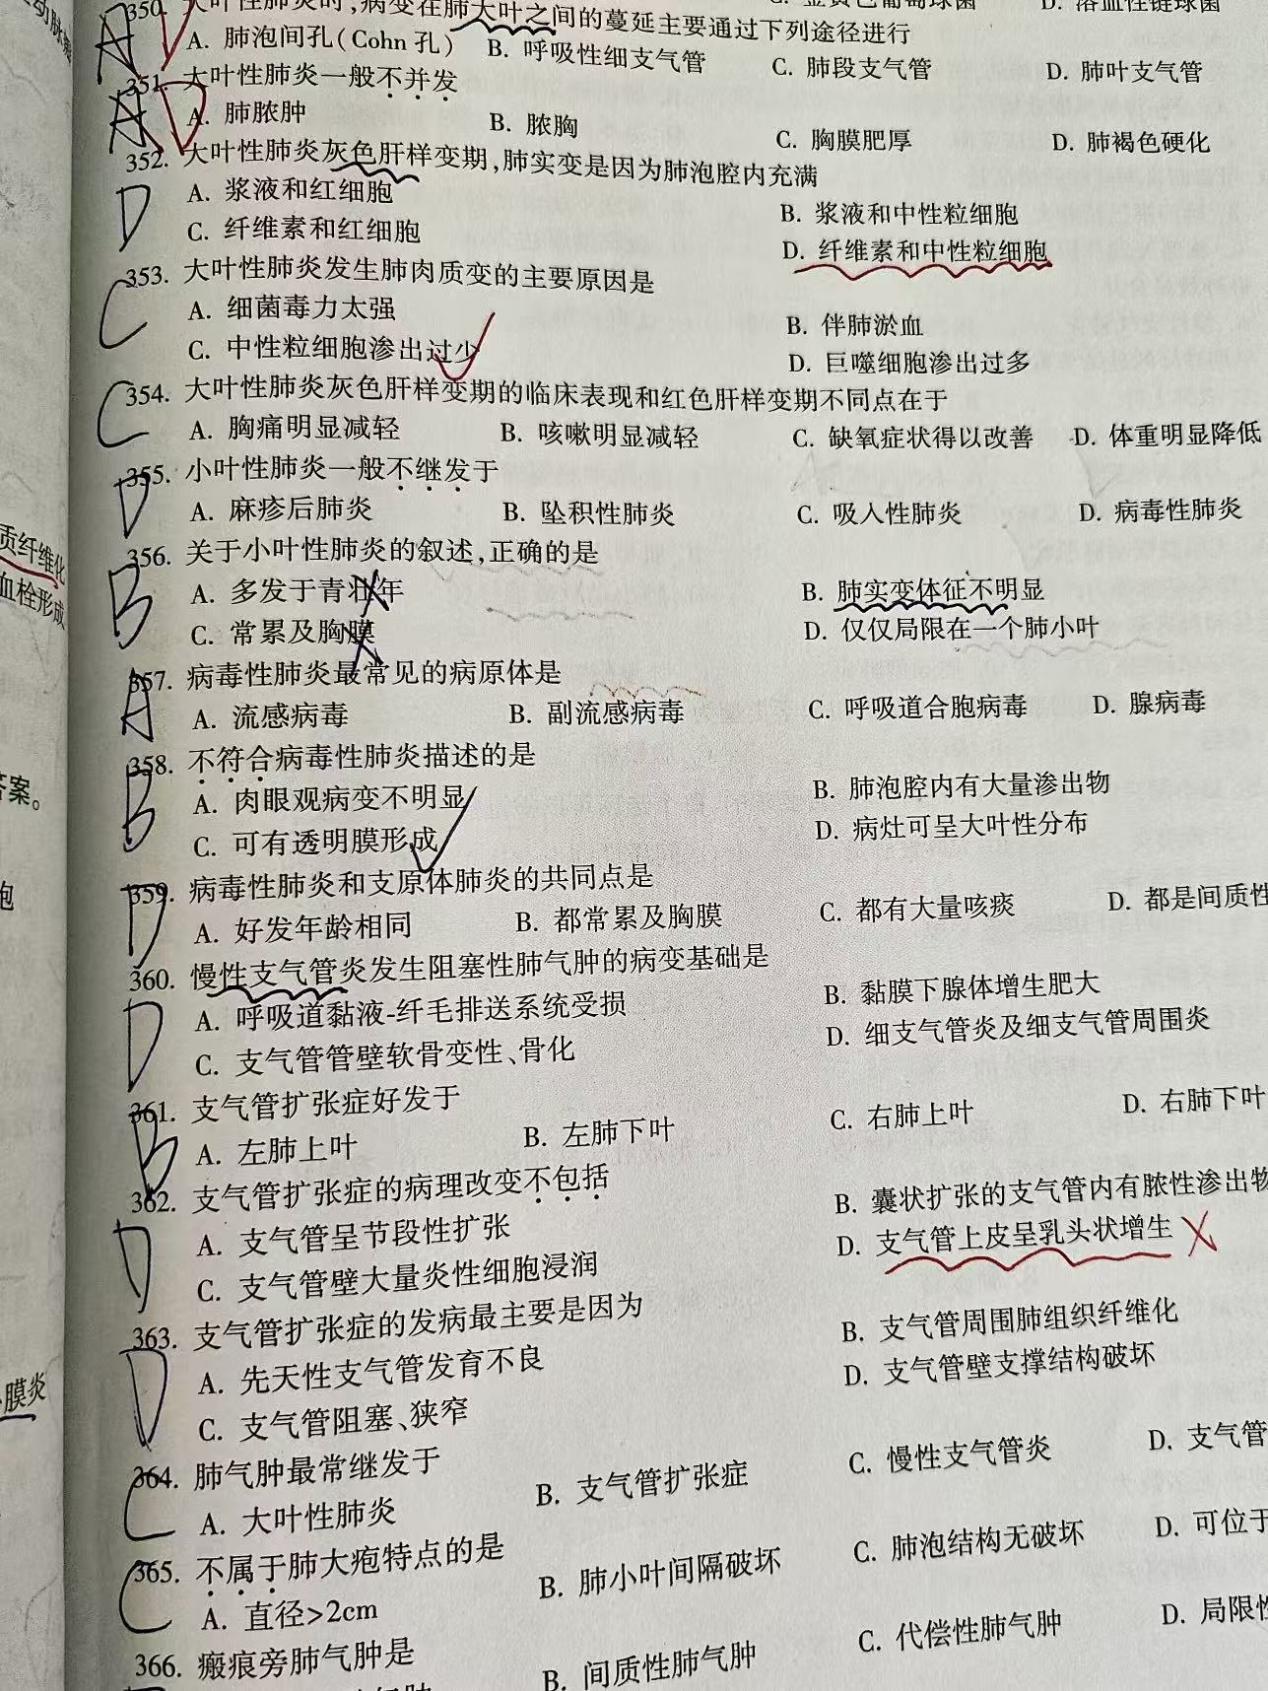 C. 金黄色葡萄球菌 D. 溶血性链球菌
350. 大叶性肺炎时,病变在肺大叶之间的蔓延主要通过下列途径进行
A. 肺泡间孔(Cohn 孔) B. 呼吸性细支气管 C. 肺段支气管 D. 肺叶支气管
351. 大叶性肺炎一般不并发
A. 肺脓肿 B. 脓胸 C. 胸膜肥厚 D. 肺褐色硬化
352. 大叶性肺炎灰色肝样变期,肺实变是因为肺泡腔内充满
A. 浆液和红细胞 B. 浆液和中性粒细胞
C. 纤维素和红细胞 D. 纤维素和中性粒细胞
353. 大叶性肺炎发生肺肉质变的主要原因是
A. 细菌毒力太强 B. 伴肺淤血
C. 中性粒细胞渗出过少 D. 巨噬细胞渗出过多
354. 大叶性肺炎灰色肝样变期的临床表现和红色肝样变期不同点在于
A. 胸痛明显减轻 B. 咳嗽明显减轻 C. 缺氧症状得以改善 D. 体重明显降低
355. 小叶性肺炎一般不继发于
A. 麻疹后肺炎 B. 坠积性肺炎 C. 吸入性肺炎 D. 病毒性肺炎
356. 关于小叶性肺炎的叙述,正确的是
A. 多发于青壮年 B. 肺实变体征不明显
C. 常累及胸膜 D. 仅仅局限在一个肺小叶
357. 病毒性肺炎最常见的病原体是
A. 流感病毒 B. 副流感病毒 C. 呼吸道合胞病毒 D. 腺病毒
358. 不符合病毒性肺炎描述的是
A. 肉眼观病变不明显 B. 肺泡腔内有大量渗出物
C. 可有透明膜形成 D. 病灶可呈大叶性分布
359. 病毒性肺炎和支原体肺炎的共同点是
A. 好发年龄相同 B. 都常累及胸膜 C. 都有大量咳痰 D. 都是间质性
360. 慢性支气管炎发生阻塞性肺气肿的病变基础是
A. 呼吸道黏液-纤毛排送系统受损 B. 黏膜下腺体增生肥大
C. 支气管管壁软骨变性、骨化 D. 细支气管炎及细支气管周围炎
361. 支气管扩张症好发于
A. 左肺上叶 B. 左肺下叶 C. 右肺上叶 D. 右肺下叶
362. 支气管扩张症的病理改变不包括
A. 支气管呈节段性扩张 B. 囊状扩张的支气管内有脓性渗出物
C. 支气管壁大量炎性细胞浸润 D. 支气管上皮呈乳头状增生
363. 支气管扩张症的发病最主要是因为
A. 先天性支气管发育不良 B. 支气管周围肺组织纤维化
C. 支气管阻塞、狭窄 D. 支气管壁支撑结构破坏
364. 肺气肿最常继发于
A. 大叶性肺炎 B. 支气管扩张症 C. 慢性支气管炎 D. 支气管
365. 不属于肺大疱特点的是
A. 直径>2cm B. 肺小叶间隔破坏 C. 肺泡结构无破坏 D. 可位于
366. 瘢痕旁肺气肿是
B. 间质性肺气肿 C. 代偿性肺气肿 D. 局限性
质纤维化
血栓形成
答案。
胞
膜炎
A
A
D
C
C
D
B
A
B
D
D
B
D
D
C
C